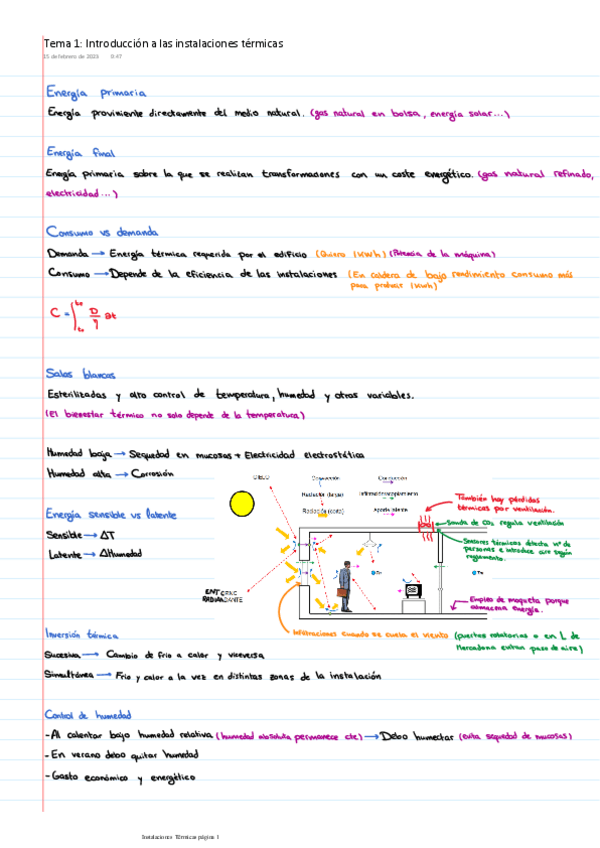 Tema 1: Introducción a las instalaciones térmicas
15 de febrero de 2023 0:47
Energía primaria
Energía proviniente directamente del medio natural. (gas natural en bolsa, energía solar...)
Energía final
Energía primaria sobre la que se realizan transformaciones con un coste energético. (gas natural refinado,
electricidad...)
Consumo vs demanda
Demanda → Energía térmica requerida por el edificio (Quiero 1kWh) (Potencia de la máquina)
Consumo → Depende de la eficiencia de las instalaciones (En caldera de bajo rendimiento consumo más
para producir 1kWh)
Salas blancas
Esterilizadas y alto control de temperatura, humedad y otras variables.
(El bienestar térmico no solo depende de la temperatura)
Humedad baja → Sequedad en mucosas + Electricidad electrostática
Humedad alta → Corrosión
CIELO
Convección
Conducción
Radiación (larga)
Infiltraciones/soplamiento
Radiación (corta)
Aporte latente
También hay pérdidas
térmicas por ventilación.
Sonda de CO2 regula ventilación
Sensores térmicos detecta nº de
personas e introduce aire según
reglamento.
Energía sensible vs latente
Sensible → ΔT
Latente → ΔHumedad
ENTORNO
RADIANTE
Empleo de maqueta porque
almacena energía.
Infiltraciones cuando se cuela el viento (puertas rotatorias o en L de
Mercadona evitan paso de aire)
Inversión térmica
Sucesiva → Cambio de frío a calor y viceversa
Simultánea → Frío y calor a la vez en distintas zonas de la instalación
Control de humedad
- Al calentar bajo humedad relativa (humedad absoluta permanece cte) → Debo humectar (evita sequedad de mucosas)
- En verano debo quitar humedad
- Gasto económico y energético
Instalaciones Térmicas página 1